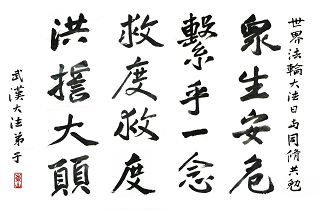 世界法輪大法日与同脩共勉
衆生安危
繫乎一念
救度救度
洪誓大願
武漢大法弟子